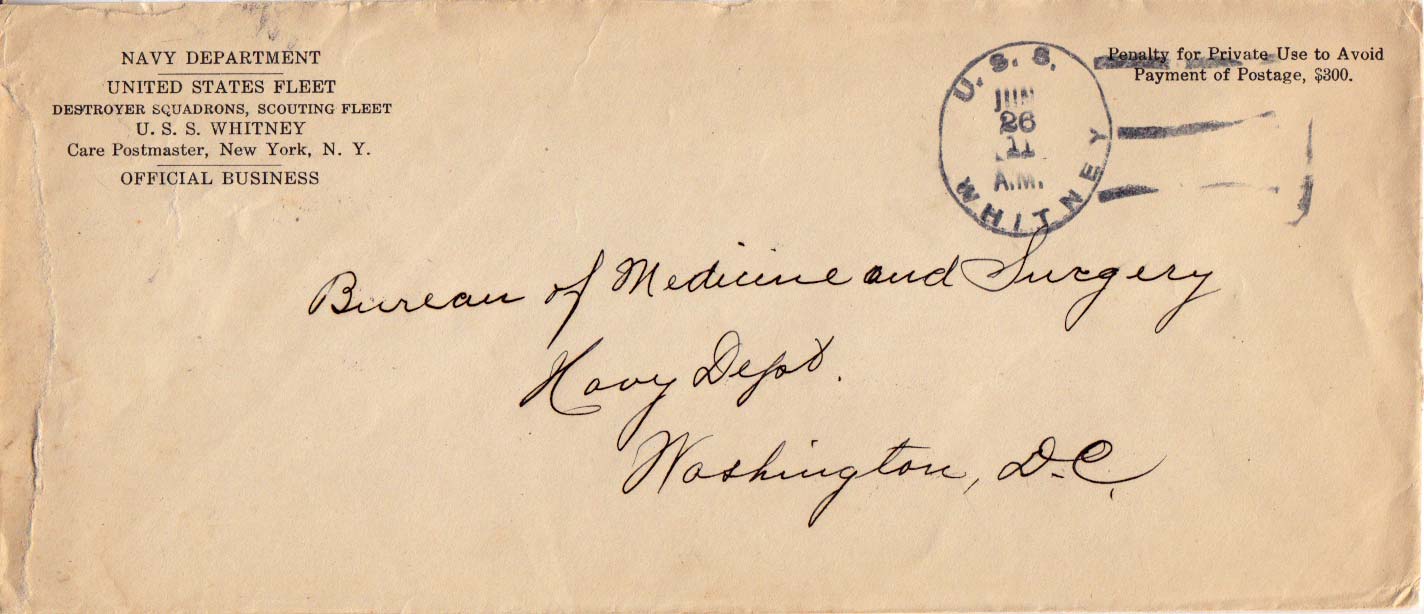 NAVY DEPARTMENT
UNITED STATES FLEET
DESTROYER SQUADRONS, SCOUTING FLEET
U. S. S. WHITNEY
Care Postmaster, New York, N. Y.
OFFICIAL BUSINESS
U. S. S.
JUN
26
11
A.M.
WHITNEY
Penalty for Private Use to Avoid
Payment of Postage, $300.
Bureau of Medicine and Surgery
Navy Dept.
Washington, D.C.